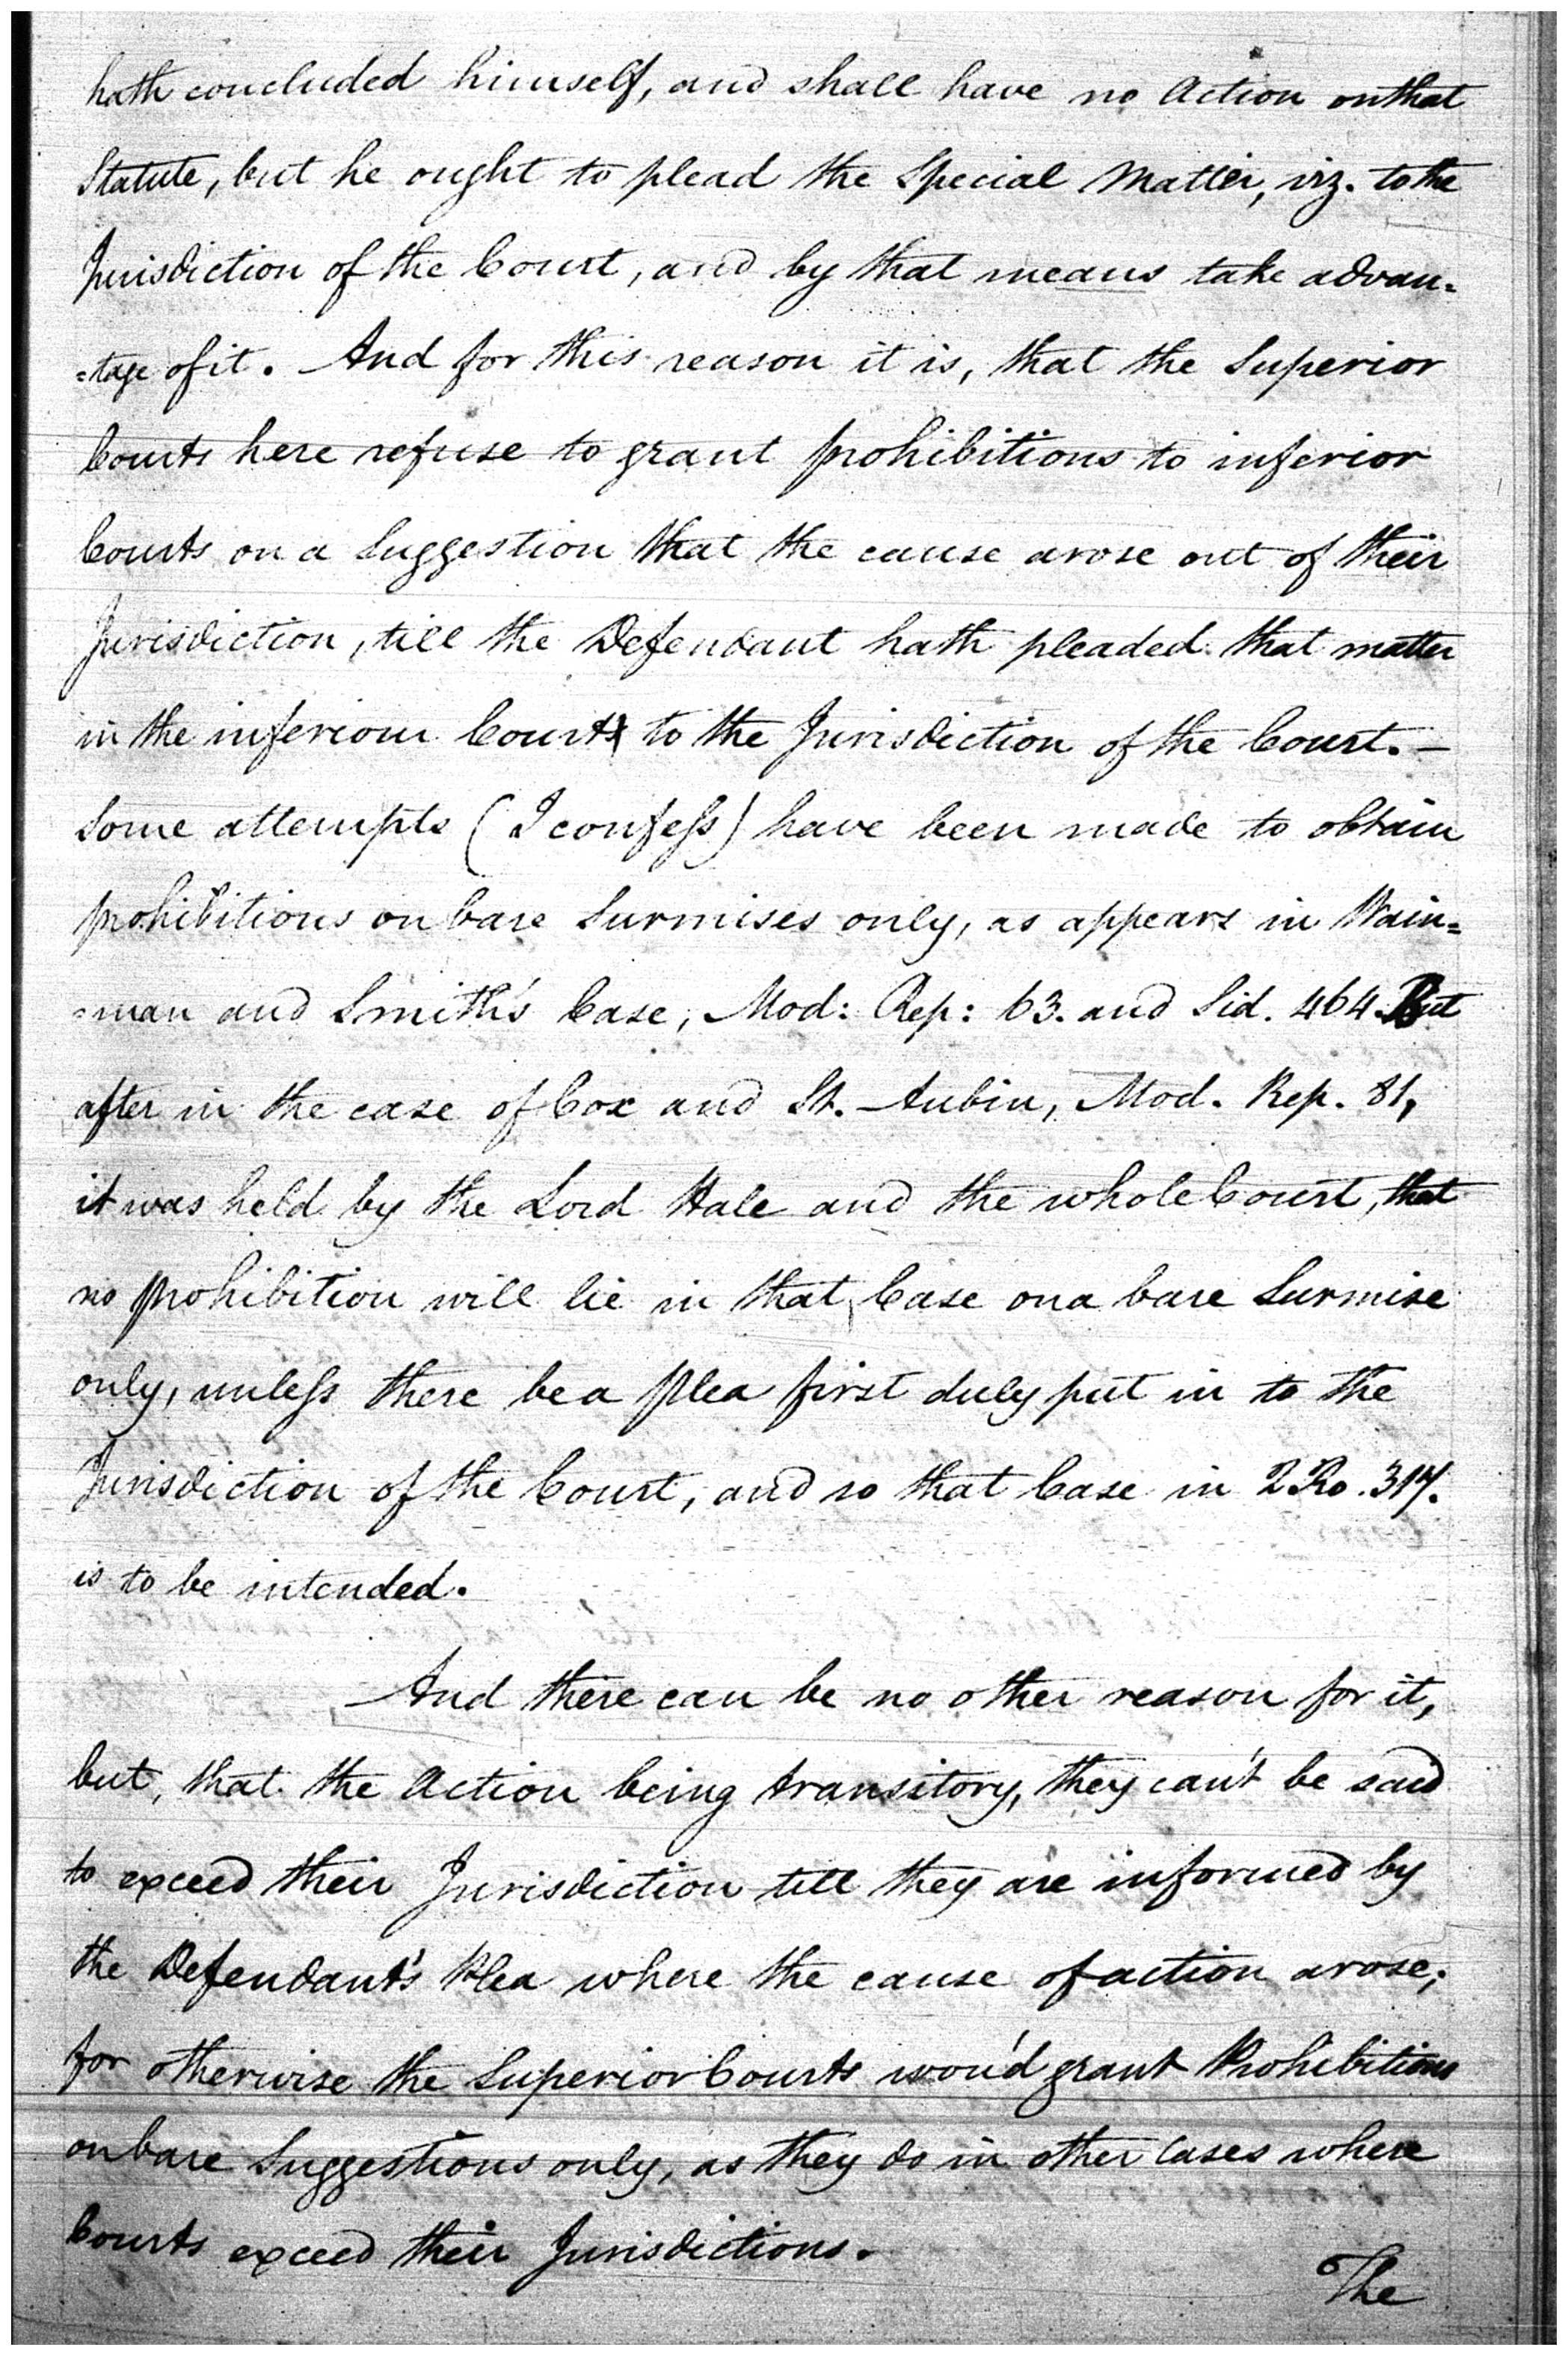 hath concluded himself, and shall have no Action on that
Statute, but he ought to plead the Special Matter, viz. to the
Jurisdiction of the Court, and by that means take advan=
=tage of it. And for this reason it is, that the Superior
Courts here refuse to grant prohibitions to inferior
Courts on a Suggestion that the cause arose out of their
Jurisdiction, till the Defendant hath pleaded that matter
in the inferiour Court to the Jurisdiction of the Court. —
Some attempts (I confess) have been made to obtain
prohibitions on bare Surmises only, as appears in Wain=
=man and Smith's Case, Mod: Rep: 63. and Sid. 464. But
after in the case of Cox and St. Aubin, Mod. Rep. 81,
it was held by the Lord Hale and the whole Court, that
no prohibition will lie in that Case on a bare Surmise
only, unless there be a plea first duly put in to the
Jurisdiction of the Court, and so that Case in 2 Ro. 317.
is to be intended.
And there can be no other reason for it,
but, that the Action being transitory, they can't be said
to exceed their Jurisdiction till they are informed by
the Defendant's Plea where the cause of action arose;
for otherwise the Superior Courts wou'd grant Prohibitions
on bare Suggestions only, as they do in other Cases where
Courts exceed their Jurisdictions.
The